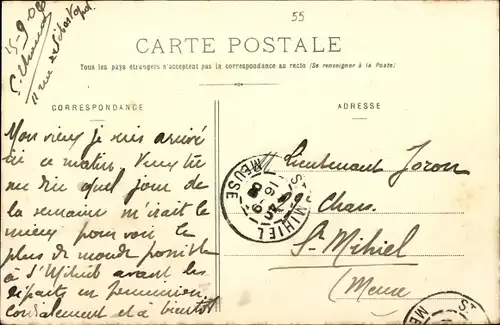 55
15-9-08
CARTE POSTALE
11 rue
Tous les pays étrangers n'acceptent pas la correspondance au recto (Se renseigner à la Poste)
CORRESPONDANCE
Mon vieux je suis arrivé
ici ce matin. Veux tu
me dire quel jour de
la semaine m'irait le
mieux pour voir le
plus de monde possible
à St Mihiel avant les
départs en permission.
cordialement et à bientôt
ADRESSE
Lieutenant Joron
Chas.
St-Mihiel
(Meuse
ST MIHIEL
MEUSE
16-9
08
ST M
ME